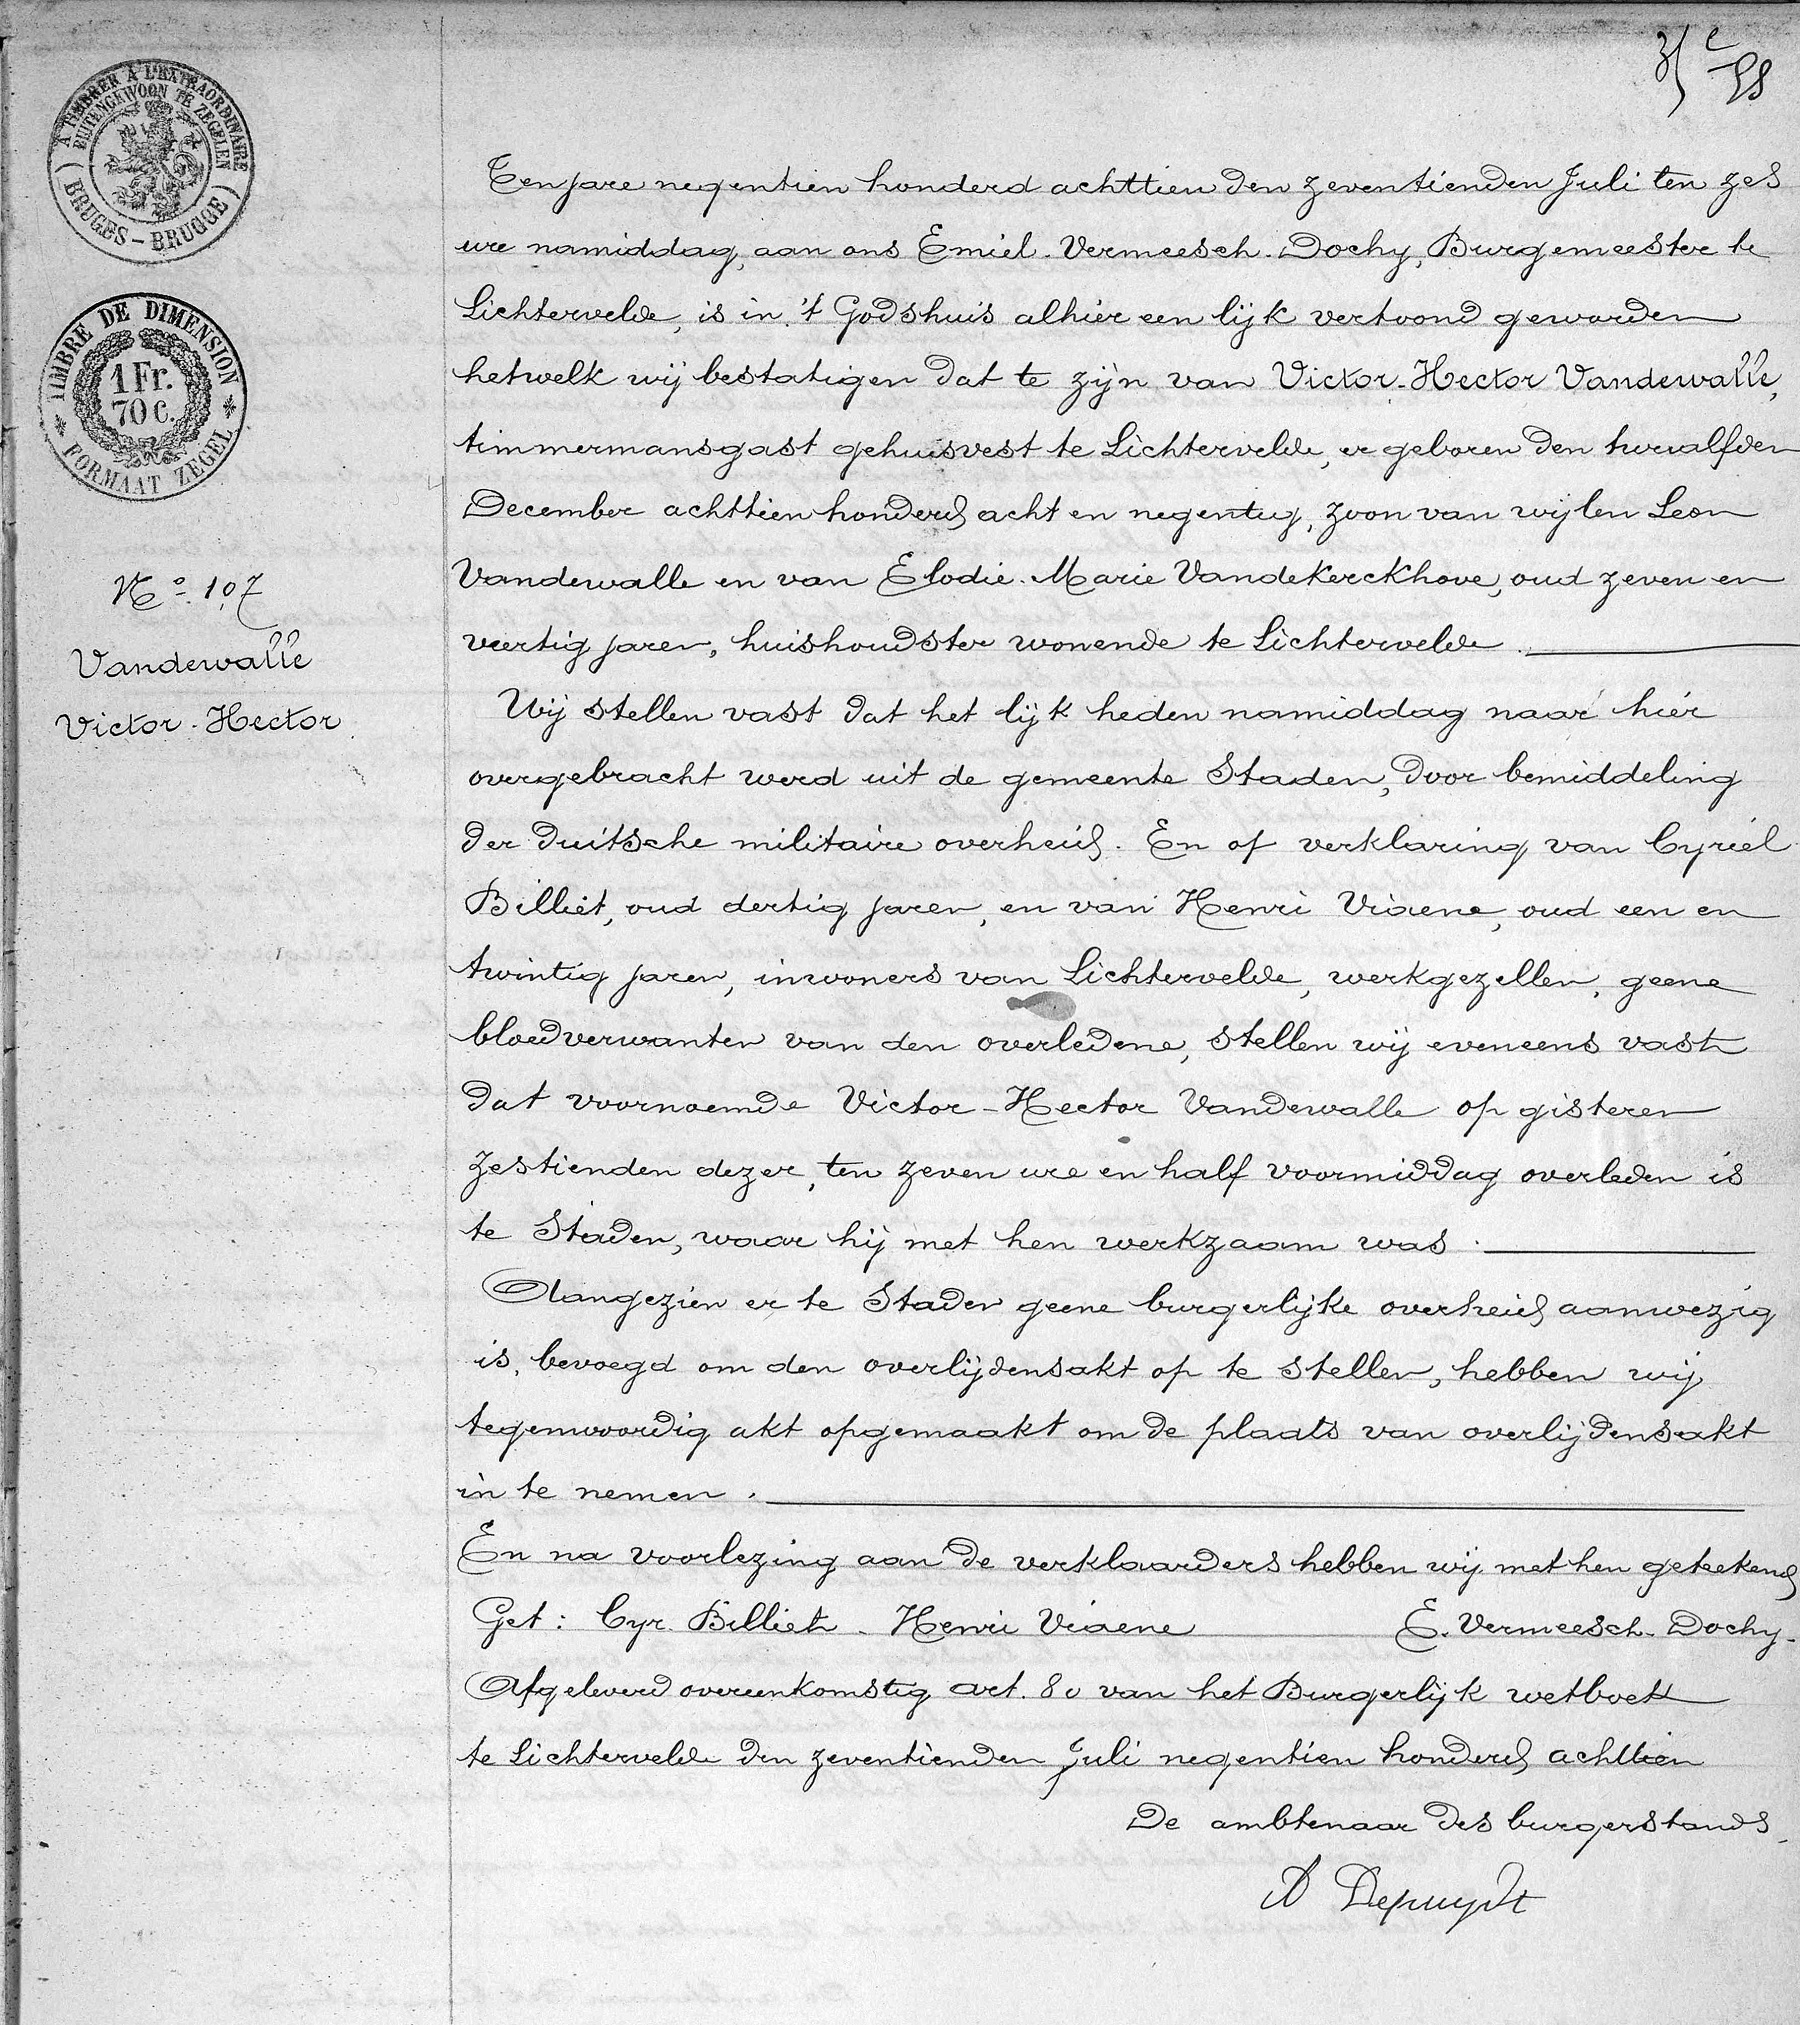 À TIMBRER À L'EXTRAORDINAIRE
BUITENGEWOON TE ZEGELEN
( BRUGES - BRUGGE )
TIMBRE DE DIMENSION
1 Fr.
70 C.
* FORMAAT ZEGEL *
No. 107
Vandewalle
Victor-Hector
Ten jare negentien honderd achttien den zeventienden Juli ten zes
ure namiddag, aan ons Emiel Vermeesch-Dochy, Burgemeester te
Lichtervelde, is in 't Godshuis alhier een lijk vertoond geworden
hetwelk wij bestatigen dat te zijn van Victor-Hector Vandewalle,
timmermansgast gehuisvest te Lichtervelde, er geboren den twaalfden
December achttien honderd acht en negentig, zoon van wijlen Leon
Vandewalle en van Elodie-Marie Vandekerckhove, oud zeven en
veertig jaren, huishoudster wonende te Lichtervelde.
Wij stellen vast dat het lijk heden namiddag naar hier
overgebracht werd uit de gemeente Staden, door bemiddeling
der duitsche militaire overheid. En op verklaring van Cyriel
Billiet, oud dertig jaren, en van Henri Viaene, oud een en
twintig jaren, inwoners van Lichtervelde, werkgezellen, geene
bloedverwanten van den overledene, stellen wij eveneens vast
dat voornoemde Victor-Hector Vandewalle op gisteren
zestienden dezer, ten zeven ure en half voormiddag overleden is
te Staden, waar hij met hen werkzaam was.
Aangezien er te Staden geene burgerlijke overheid aanwezig
is, bevoegd om den overlijdensakt op te stellen, hebben wij
tegenwoordig akt opgemaakt om de plaats van overlijdensakt
in te nemen.
En na voorlezing aan de verklaarders hebben wij met hen geteekend
Get: Cyr. Billiet - Henri Viaene E. Vermeesch-Dochy.
Afgeleverd overeenkomstig art. 80 van het Burgerlijk wetboek
te Lichtervelde den zeventienden Juli negentien honderd achttien
De ambtenaar des burgerstands,
A Depuydt